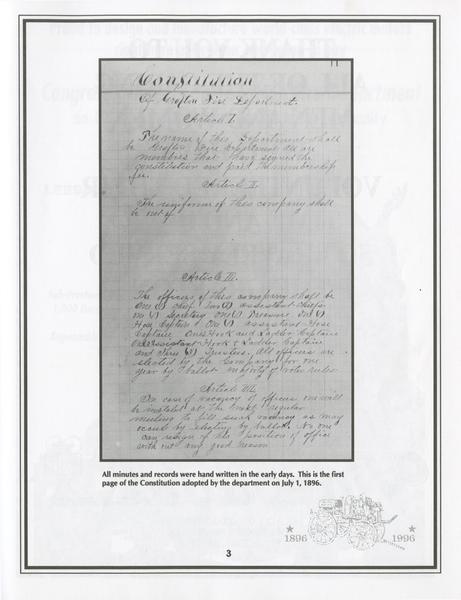 11
Constitution
Of Crofton Fire Department.
Article I.
The name of this Department shall
be Crofton Fire Department all are
members that have signed the
constitution and paid the membership
fee.
Article II.
The uniforms of this company shall
be not of
Article III.
The officers of this company shall be
one (1) chief two (2) assistant chiefs
one (1) secretary one (1) Treasure one (1)
Hose Captain one (1) assistant Hose
Captain one Hook and Ladder Captain
one assistant Hook & Ladder Captain
and three (3) Trustees. All officers are
elected by the Company for one
year by ballot majority of votes rules
Article IIII.
In case of vacancy of officers one will
be installed at the next regular
meeting to fill such vacancy as may
occur by electing by ballot. No one
can resign of his position of office
with out any good reason
All minutes and records were hand written in the early days. This is the first
page of the Constitution adopted by the department on July 1, 1896.
1896 1996
3